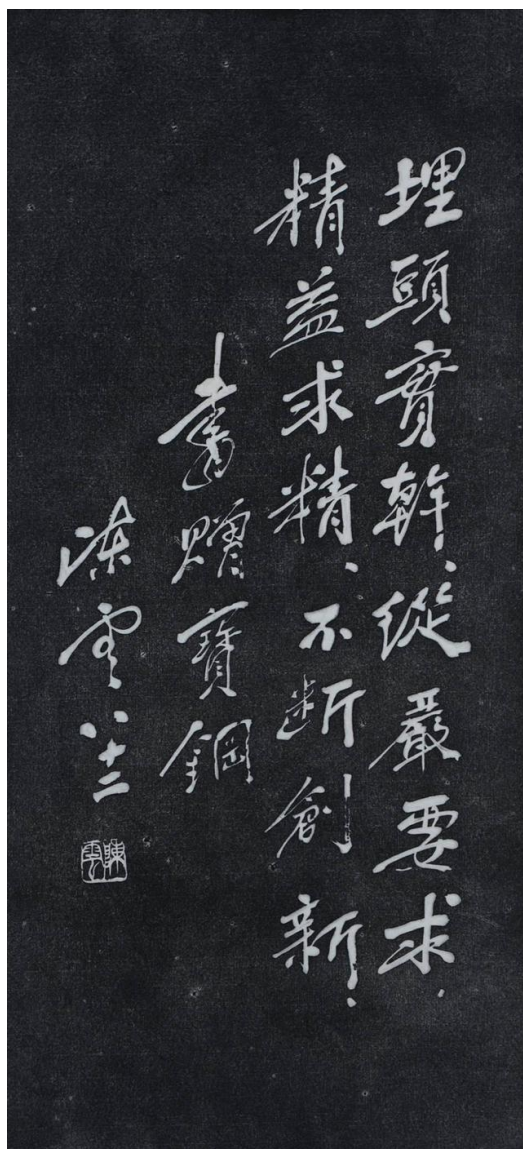 埋頭實幹、從嚴要求、
精益求精、不断創新、
書贈寶鋼
陈雲 八十二
陳雲